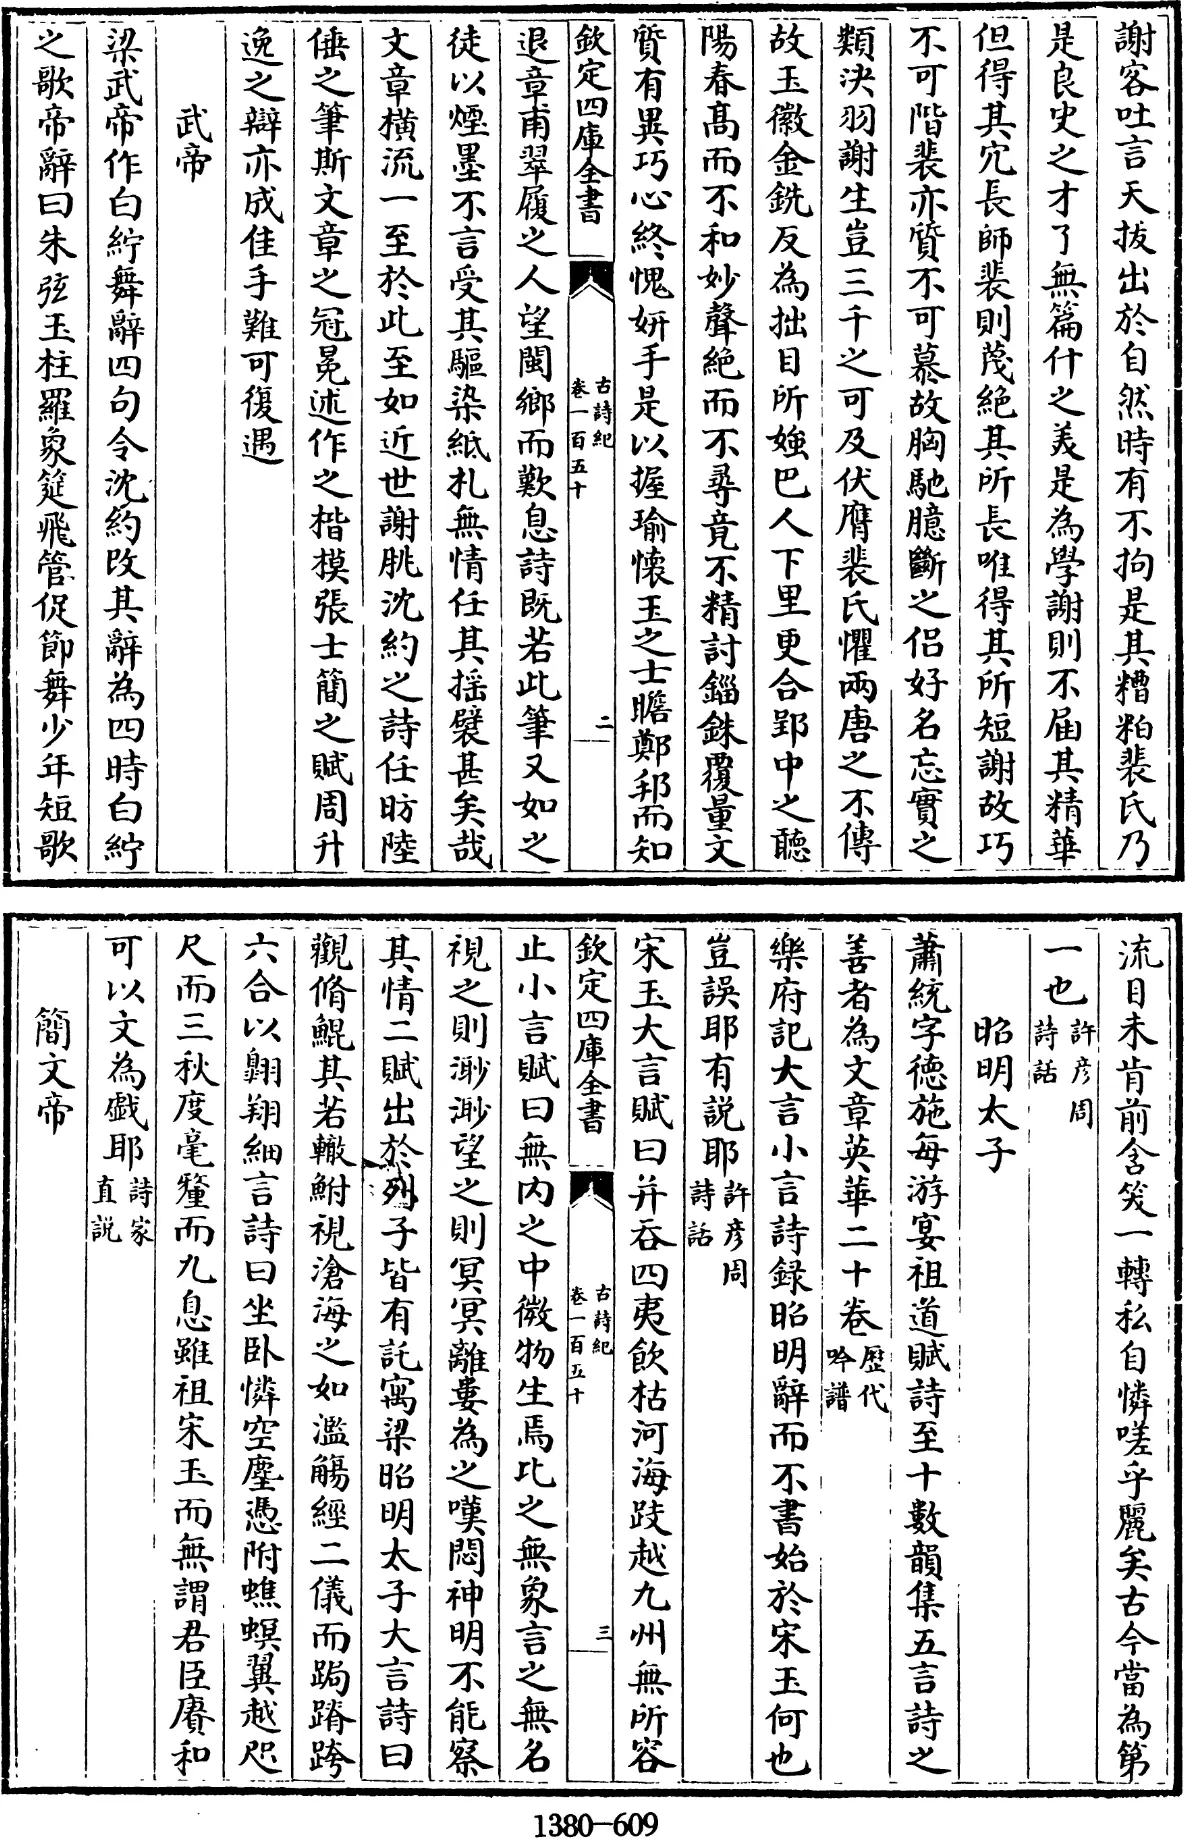 謝客吐言天拔出於自然時有不拘是其糟粕裴氏乃
是良史之才了無篇什之美是為學謝則不屆其精華
但得其冗長師裴則蔑絶其所長唯得其所短謝故巧
不可階裴亦質不可慕故胸馳臆斷之侣好名忘實之
類決羽謝生豈三千之可及伏膺裴氏懼兩唐之不傳
故玉徽金銑反為拙目所嗤巴人下里更合郢中之聽
陽春髙而不和妙聲絶而不尋竟不精討錙銖覆量文
質有異巧心終愧妍手是以握瑜懷玉之士瞻鄭邦而知
欽定四庫全書
古詩紀
卷一百五十
二
退章甫翠履之人望閩鄉而歎息詩既若此筆又如之
徒以煙墨不言受其驅染紙札無情任其揺襞甚矣哉
文章橫流一至於此至如近世謝朓沈約之詩任昉陸
倕之筆斯文章之冠冕述作之楷模張士簡之賦周升
逸之辯亦成佳手難可復遇
武帝
梁武帝作白紵舞辭四句令沈約改其辭為四時白紵
之歌帝辭曰朱弦玉柱羅象筵飛管促節舞少年短歌
流目未肯前含笑一轉私自憐嗟乎麗矣古今當為第
一也許彦周
詩話
昭明太子
蕭統字德施每游宴祖道賦詩至十數韻集五言詩之
善者為文章英華二十卷歴代
吟譜
樂府記大言小言詩錄昭明辭而不書始於宋玉何也
豈誤耶有説耶許彦周
詩話
宋玉大言賦曰并吞四夷飲枯河海跂越九州無所容
欽定四庫全書
古詩紀
卷一百五十
三
止小言賦曰無内之中微物生焉比之無象言之無名
視之則渺渺望之則冥冥離婁為之嘆悶神明不能察
其情二賦出於列子皆有託寓梁昭明太子大言詩曰
觀脩鯤其若轍鮒視滄海之如濫觴經二儀而跼蹐跨
六合以翺翔細言詩曰坐卧憐空塵憑附蟭螟翼越咫
尺而三秋度毫釐而九息雖祖宋玉而無謂君臣賡和
可以文為戯耶詩家
直説
簡文帝
1380—609